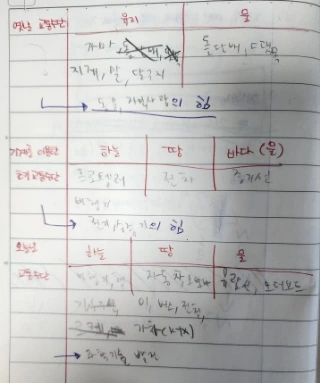 옛날 교통수단 육지 물
가마 돛단배, 뗏목
지게, 말, 달구지
동물, 자연, 사람의 힘
기계를 이용한 하늘 땅 바다 (물)
초기 교통수단 프로펠러 전차 증기선
비행기
전기, 증기의 힘
오늘날 하늘 땅 물
교통수단 자동차, 오토바 유람선, 모터보트
이, 버스, 전철,
기차(KTX)
과학기술 발전